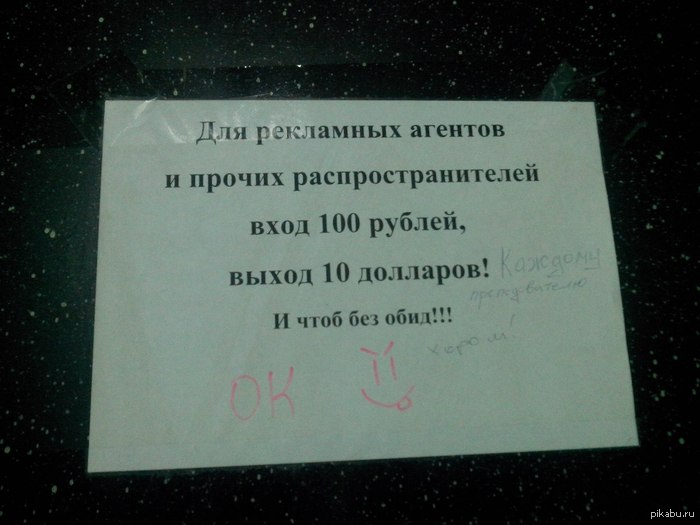 Для рекламных агентов
и прочих распространителей
вход 100 рублей,
выход 10 долларов! Каждому
И чтоб без обид!!!
ОК
pikabu.ru